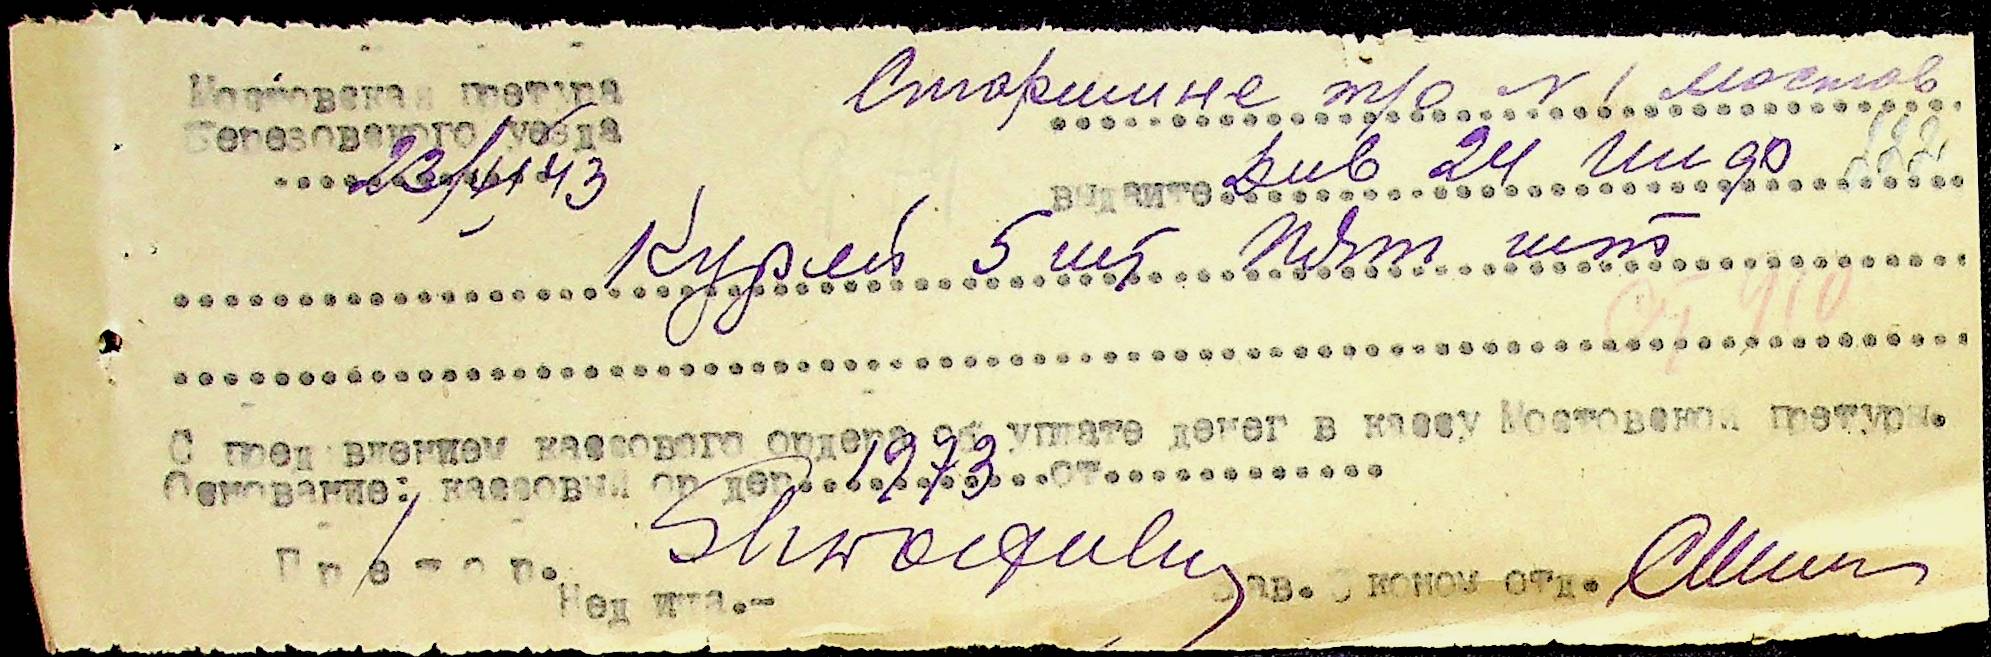 Мостовская претура
Березовского уезда
23/ 43
Старшине т/о № 1 Мостов
выдайте див 24
Курей 5 шт Пят шт
от 910
С пред влением кассового ордера об уплате денег в кассу Мостовской претуры.
Основание: кассовый ор дер 1973 от
П р е т о р.
Нед ита.-
Зав. Эконом отд.